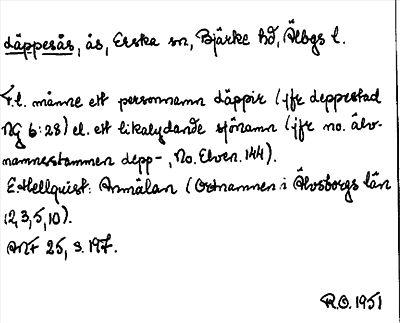 Däppesås, ås, Erska sn, Bjärke hd, Älvbgs l.
F.l. månne ett personnamn Däppir (jfr Deppestad
NG 6:28) el. ett likalydande sjönamn (jfr no. älv-
namnsstammen depp-, No. Elven. 144).
E. Hellquist: Anmälan (Ortnamnen i Älvsborgs län
12, 3, 5, 10).
ANF 25, s. 197.
R.O. 1951